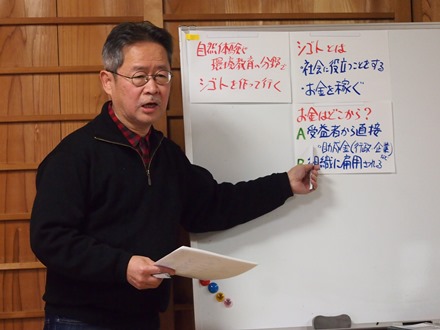 自然体験や
環境教育の分野で
シゴトを作って行く
シゴトとは
・社会に役立つことをする
・お金を稼ぐ
お金はどこから?
A 受益者から直接
助成金(行政 企業)
B 組織に雇用される